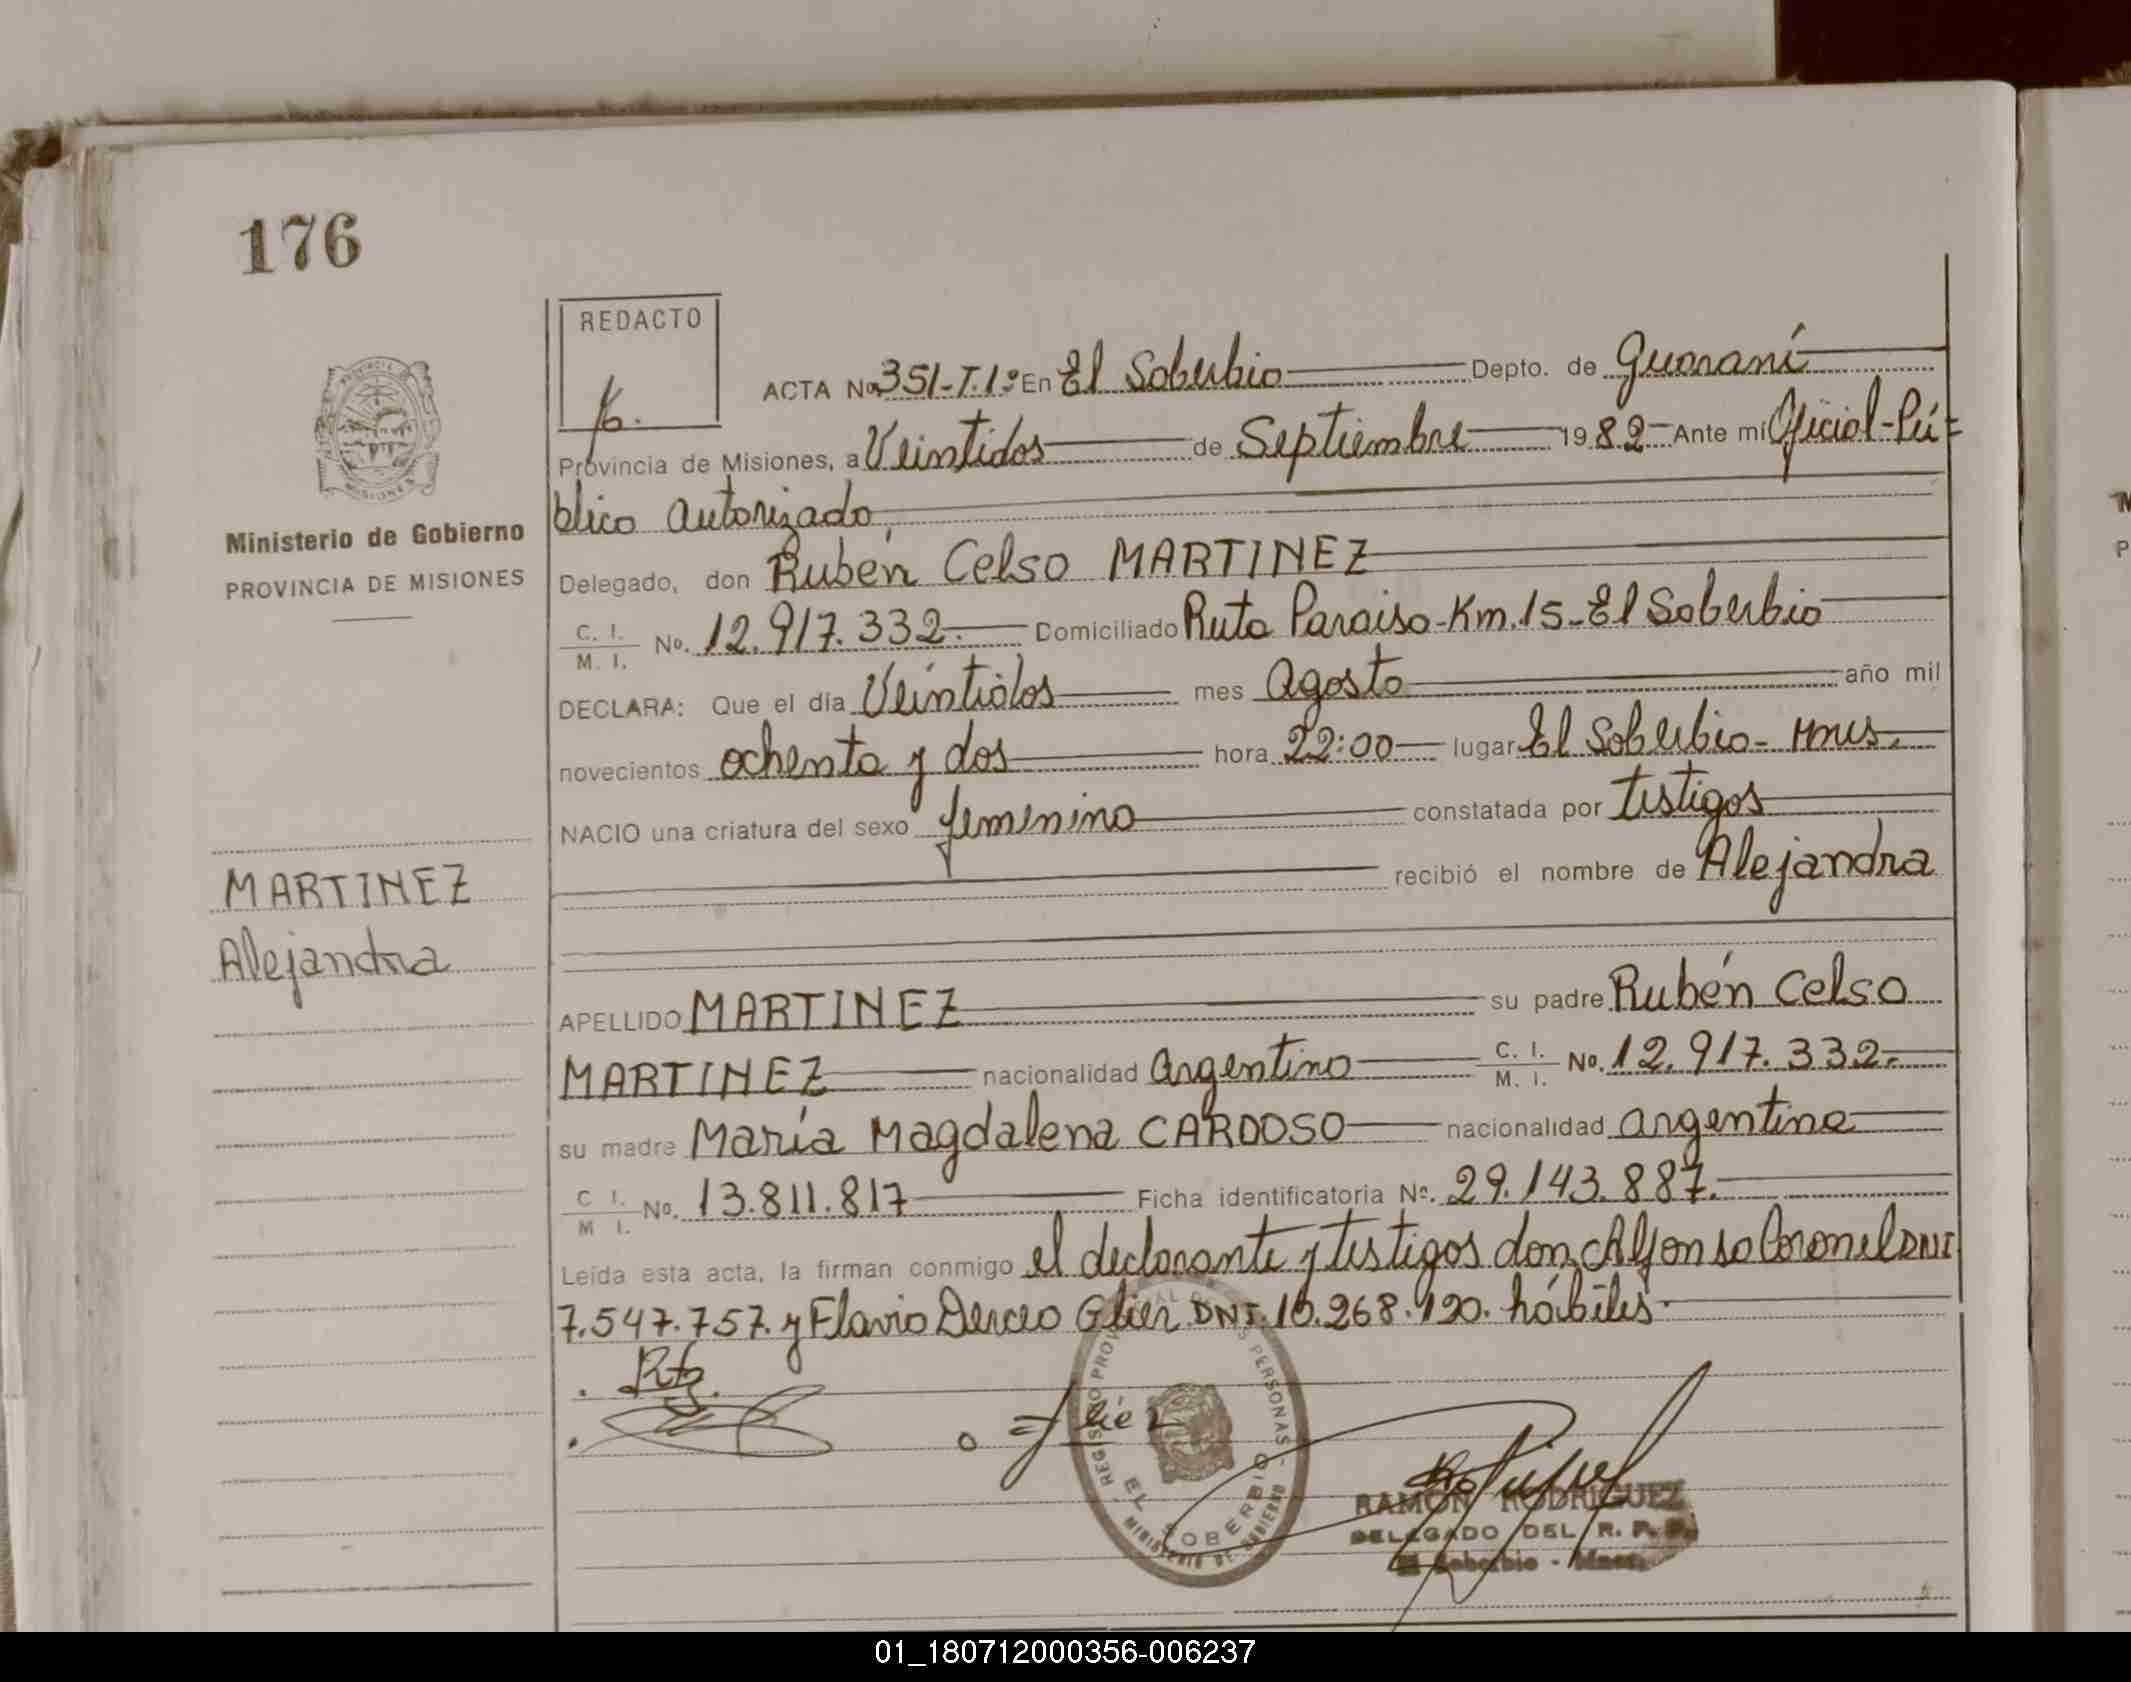 176
REDACTO
ACTA No. 351-T.1º En El Soberbio Depto. de Guaraní
Provincia de Misiones, a Veintidos de Septiembre 1982 Ante mí Oficial-Pú=
blico autorizado,
Delegado, don Rubén Celso MARTINEZ
C. I. / M. I. No. 12.917.332. Domiciliado Ruta Paraiso-Km.15-El Soberbio
DECLARA: Que el día Veintidos mes Agosto año mil
novecientos ochenta y dos hora 22:00 lugar El Soberbio- Mnes.
NACIO una criatura del sexo femenino constatada por testigos
recibió el nombre de Alejandra
APELLIDO MARTINEZ su padre Rubén Celso
MARTINEZ nacionalidad argentino C. I. / M. I. No. 12.917.332-
su madre María Magdalena CARDOSO nacionalidad argentina
C I. / M I. No. 13.811.817 Ficha identificatoria Nº. 29.143.887.
Leída esta acta, la firman conmigo el declarante y testigos don Alfonso Coronel DNI
7.547.757. y Flavio Glier DNI. 10.268.120. hábiles.
PROVINCIA
MISIONES
Ministerio de Gobierno
PROVINCIA DE MISIONES
MARTINEZ
Alejandra
REGISTRO PROVINCIAL DE LAS PERSONAS - MINISTERIO DE GOBIERNO
EL SOBERBIO
RAMON RODRIGUEZ
DELEGADO DEL R. P. P.
El Soberbio - Mnes.
01_180712000356-006237